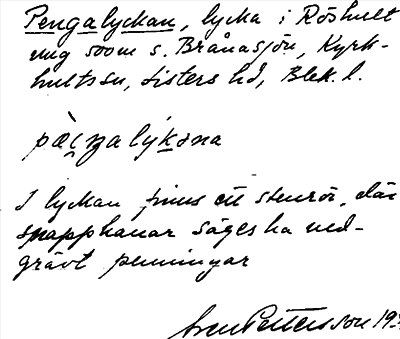 Pengalyckan, lycka i Röshult
ung 500 m s. Brånasjön, Kyrk-
hults sn, Listers hd, Blek. l.
I lyckan finns ett stenrör, där
snapphanar säges ha ned-
grävt penningar
Sven Pettersson 193